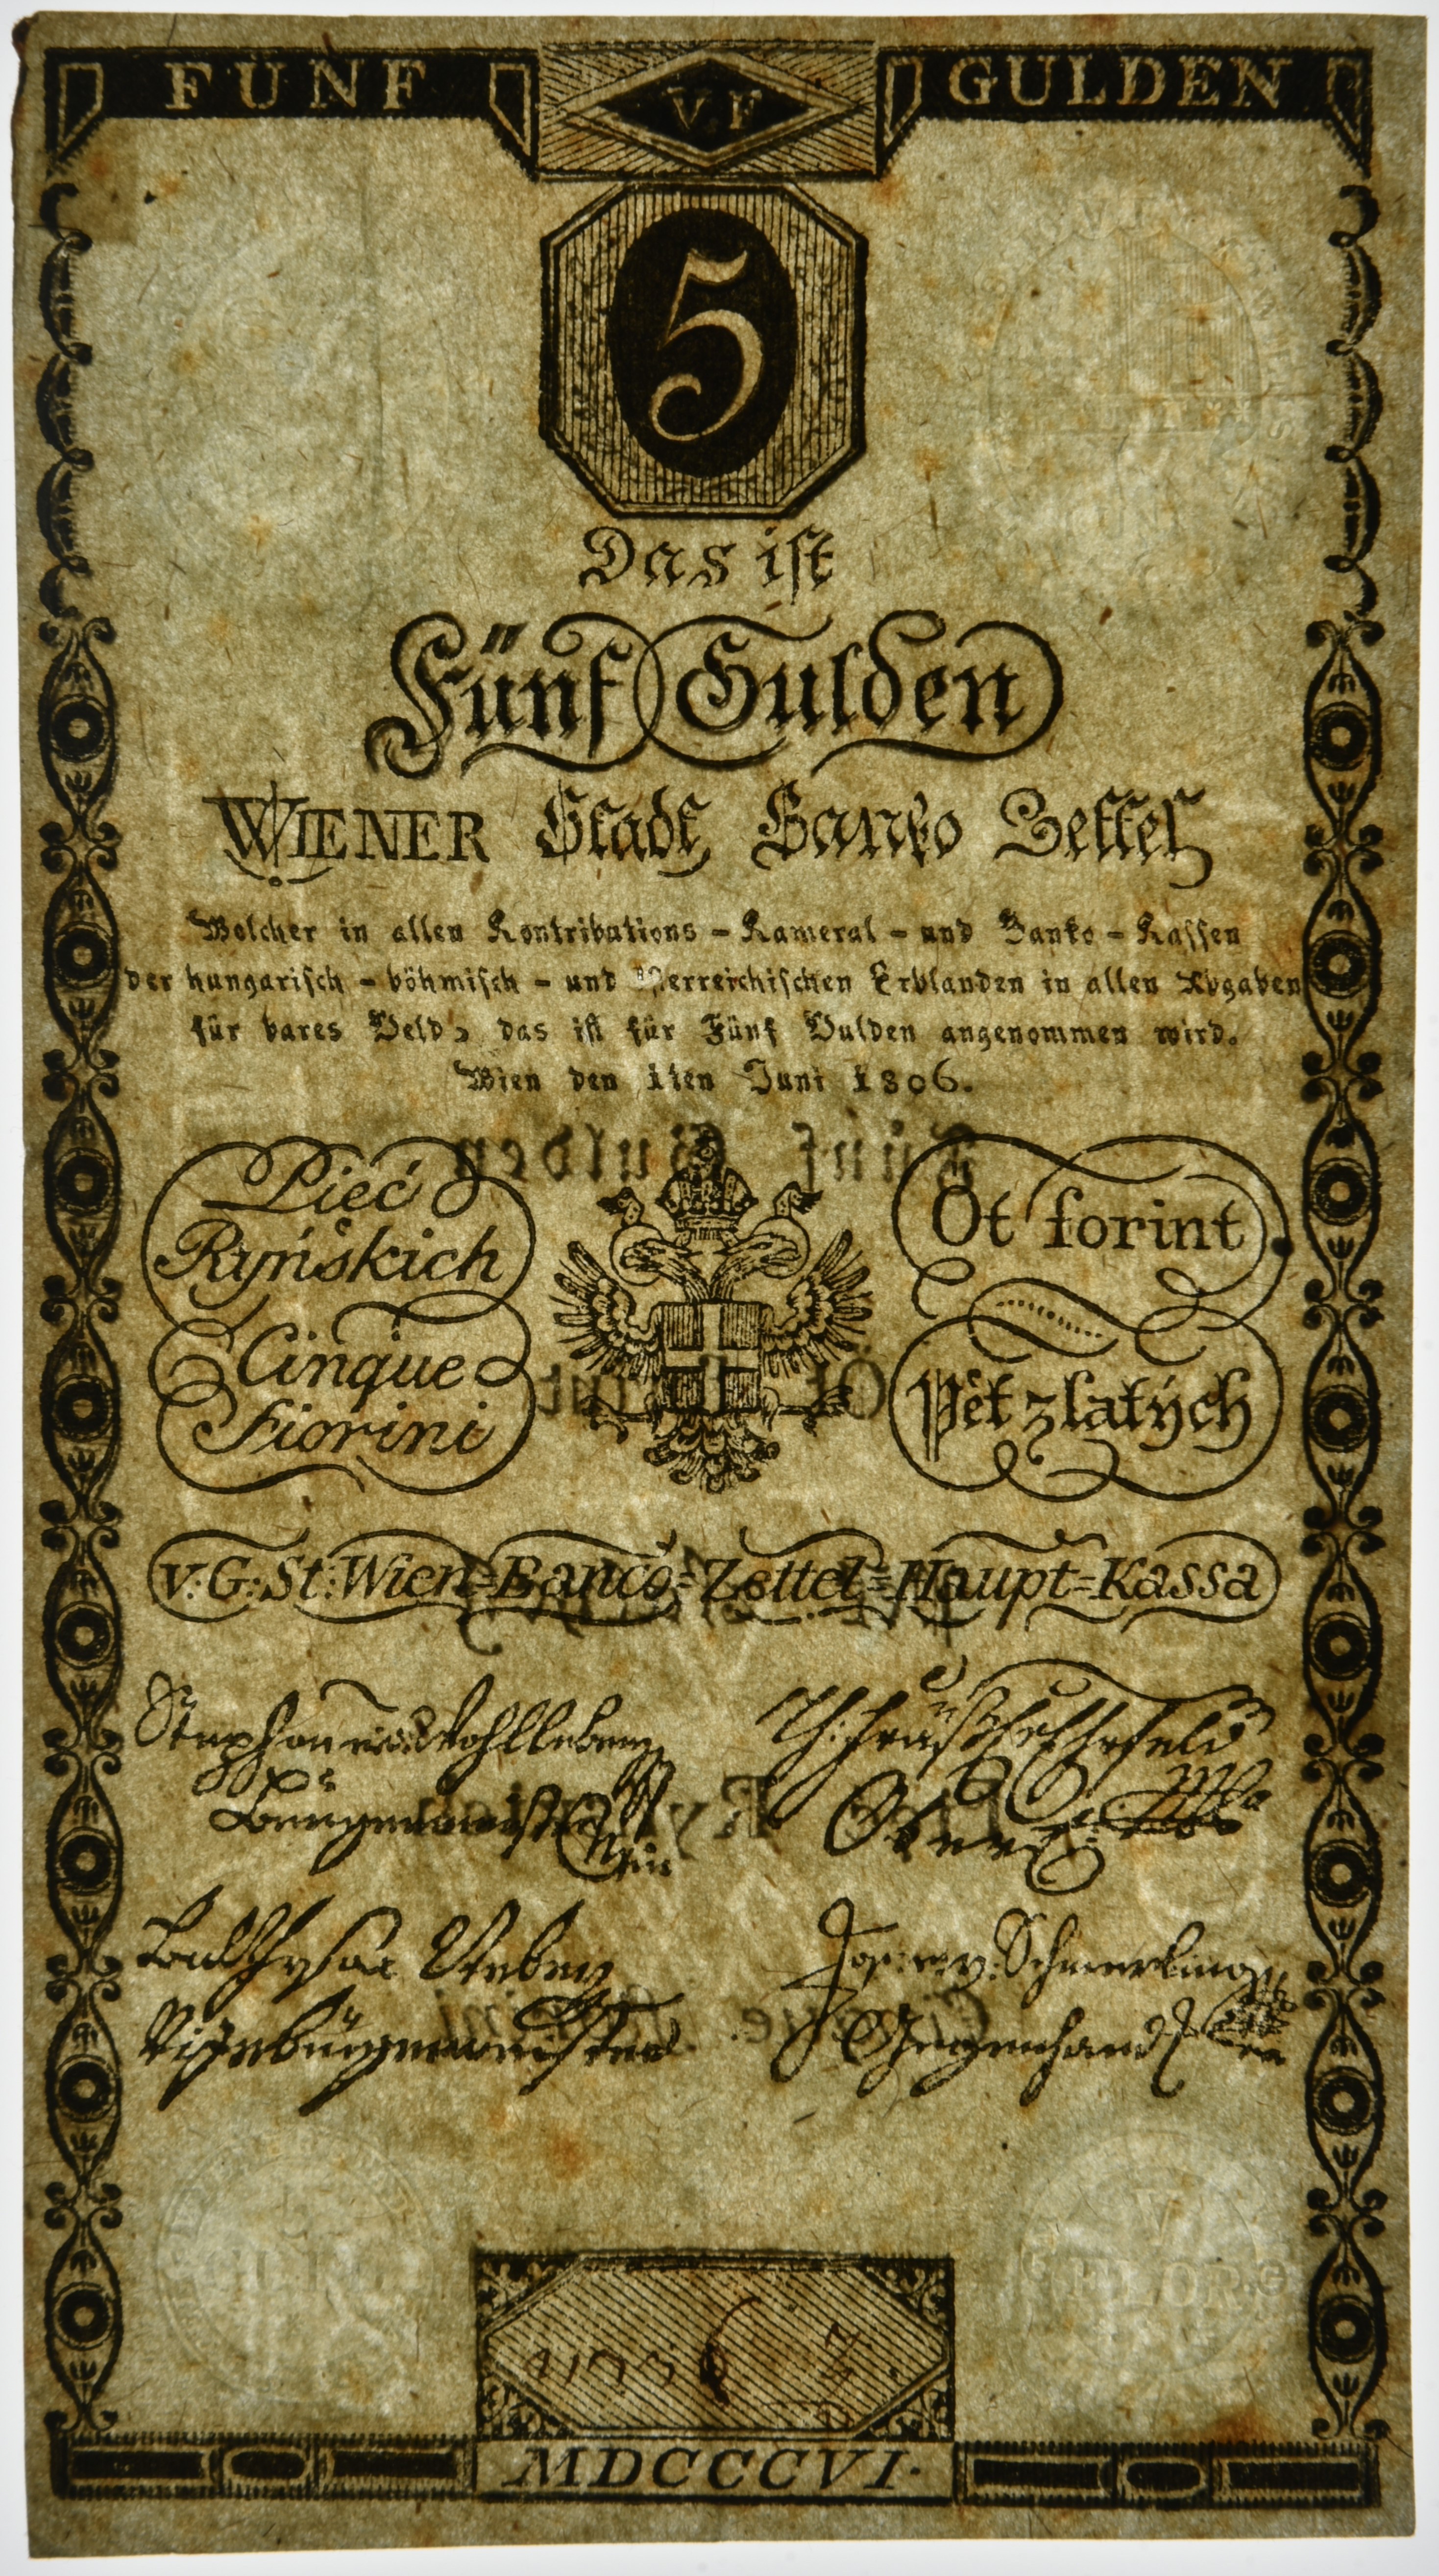 FÜNF V.F GULDEN
5
Das ist
Fünf Gulden
WIENER Stadt Banko Zettel
Welcher in allen Kontributions - Kameral - und Banko - Kassen
der hungarisch - böhmisch - und österreichischen Erblanden in allen Abgaben
für bares Geld, das ist für Fünf Gulden angenommen wird.
Wien den 1ten Juni 1806.
Pieć
Ryńskich
Öt forint
Cinque
Fiorini
Pět zlatých
V: G: St: Wien=Banco=Zettel=Haupt=Kassa
Stephan v. Wohlleben
Burgermeister
Jos: v. Schmerling
Vizeburgermeister
V
FLOR.
MDCCCVI.